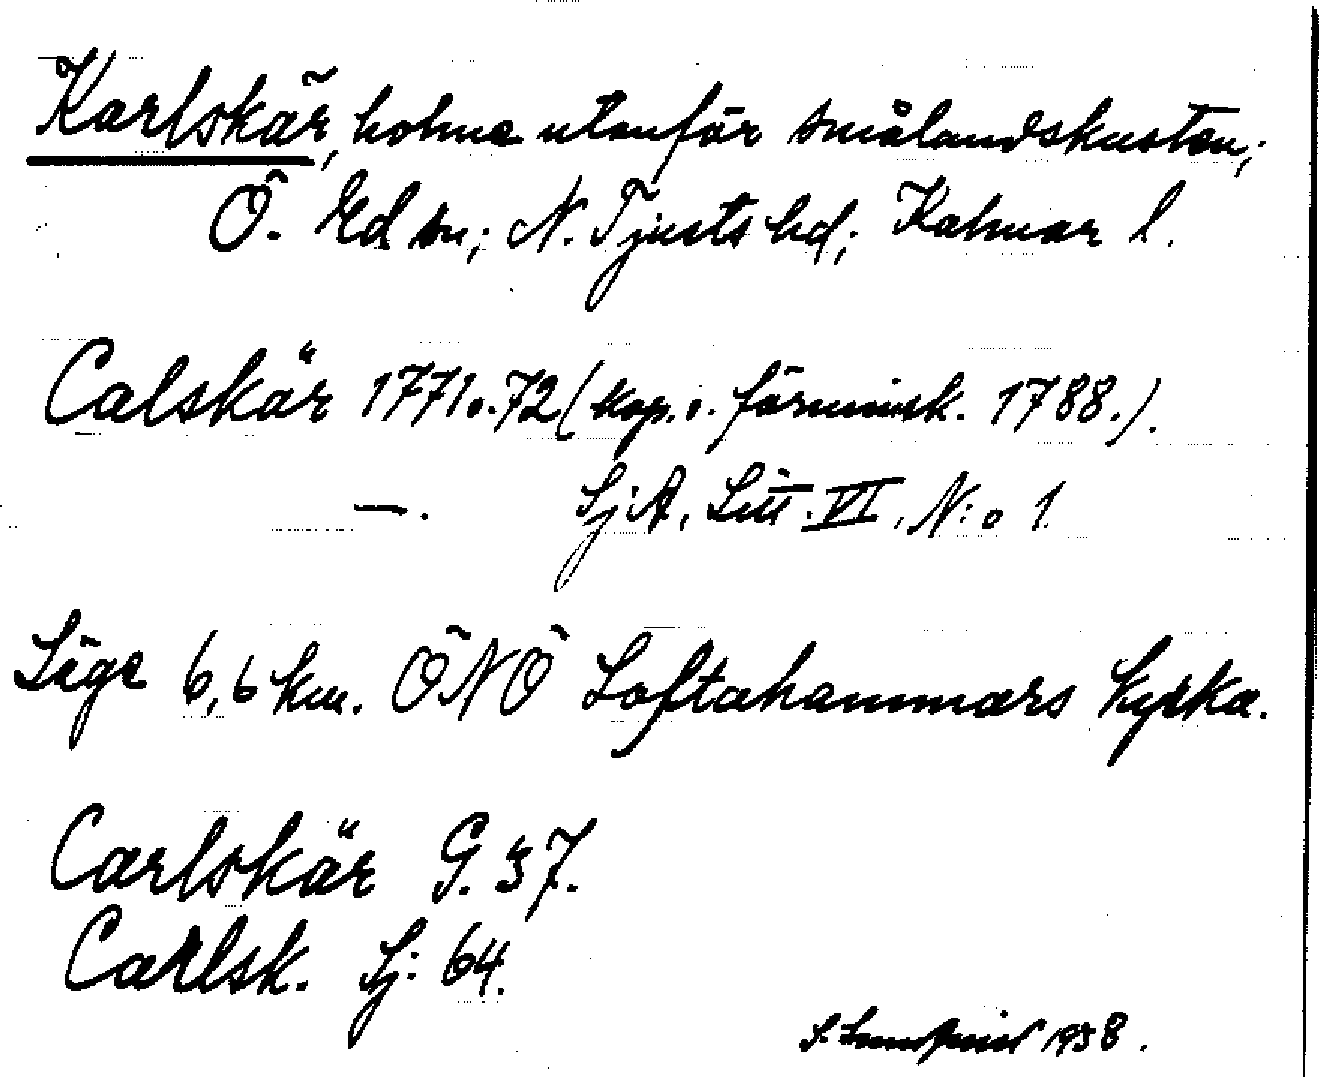 Karlskär, holme utanför smålandskusten;
Ö. Ed sn; N. Tjusts hd; Kalmar l.
Calskär 1771 o. 72 (kop. o. förminsk. 1788.).
—. SjA, Litt. VI, N:o 1.
Läge 6,6 km. ÖNÖ Loftahammars kyrka.
Carlskär G. 37.
Carlsk. Sj: 64.
1938.